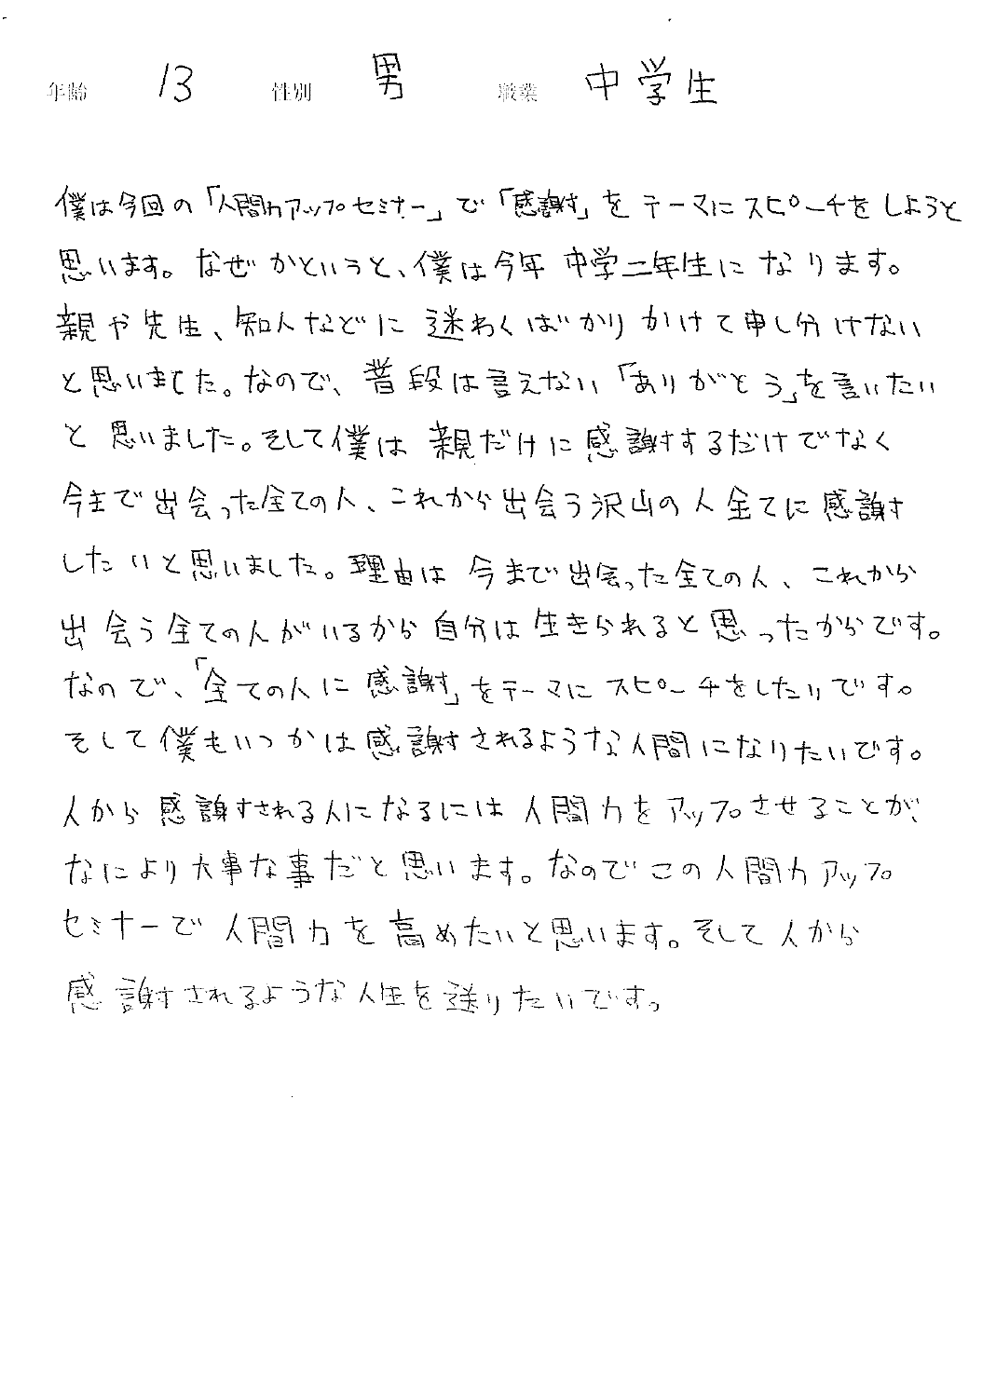 年齢 13 性別 男 職業 中学生
僕は今回の「人間力アップセミナー」で「感謝」をテーマにスピーチをしようと
思います。なぜかというと、僕は今年中学二年生になります。
親や先生、知人などに迷わくばかりかけて申し分けない
と思いました。なので、普段は言えない「ありがとう」を言いたい
と思いました。そして僕は親だけに感謝するだけでなく
今まで出会った全ての人、これから出会う沢山の人全てに感謝
したいと思いました。理由は今まで出会った全ての人、これから
出会う全ての人がいるから自分は生きられると思ったからです。
なので、「全ての人に感謝」をテーマにスピーチをしたいです。
そして僕もいつかは感謝されるような人間になりたいです。
人から感謝される人になるには人間力をアップさせることが、
なにより大事な事だと思います。なのでこの人間力アップ
セミナーで人間力を高めたいと思います。そして人から
感謝されるような人生を送りたいです。